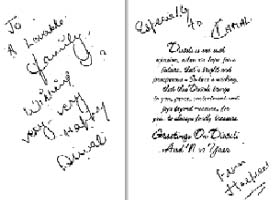 To
A Lovable
family.
Wishing
very-very
Happy
Diwali
Especially
to
Diwali is not just
occasion, when we hope for a
future, that's bright and
prosperous - Indeed a wishing,
that this Diwali brings
to you, peace, contentment and
joys beyond measure, for
you to always fondly treasure
Greetings On Diwali
And N w Year
From
Harpreet